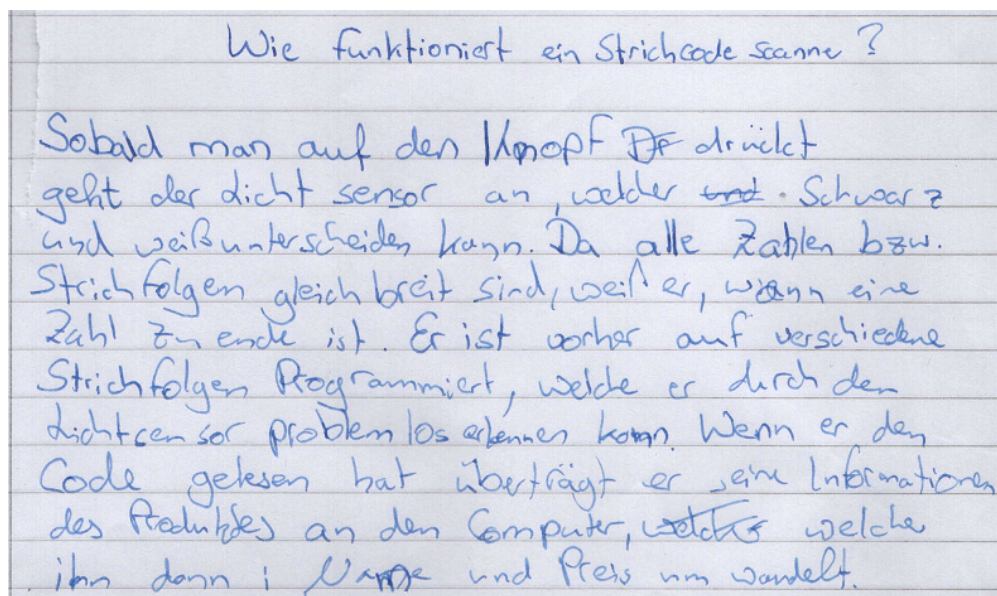 Wie funktioniert ein Strichcode scanner?
Sobald man auf den Knopf Dr drückt
geht der Licht sensor an, welcher und Schwarz
und weiß unterscheiden kann. Da alle Zahlen bzw.
Strichfolgen gleich breit sind, weiß er, wann eine
Zahl zu ende ist. Er ist vorher auf verschiedene
Strichfolgen Programmiert, welche er durch den
Lichtsensor problemlos erkennen kann. Wenn er den
Code gelesen hat überträgt er seine Informationen
des Produktes an den Computer, welches welcher
ihn dann i Name und Preis um wandelt.